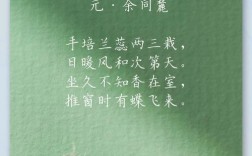 元·余同麓
手培兰蕊两三栽，
日暖风和次第天。
坐久不知香在室，
推窗时有蝶飞来。